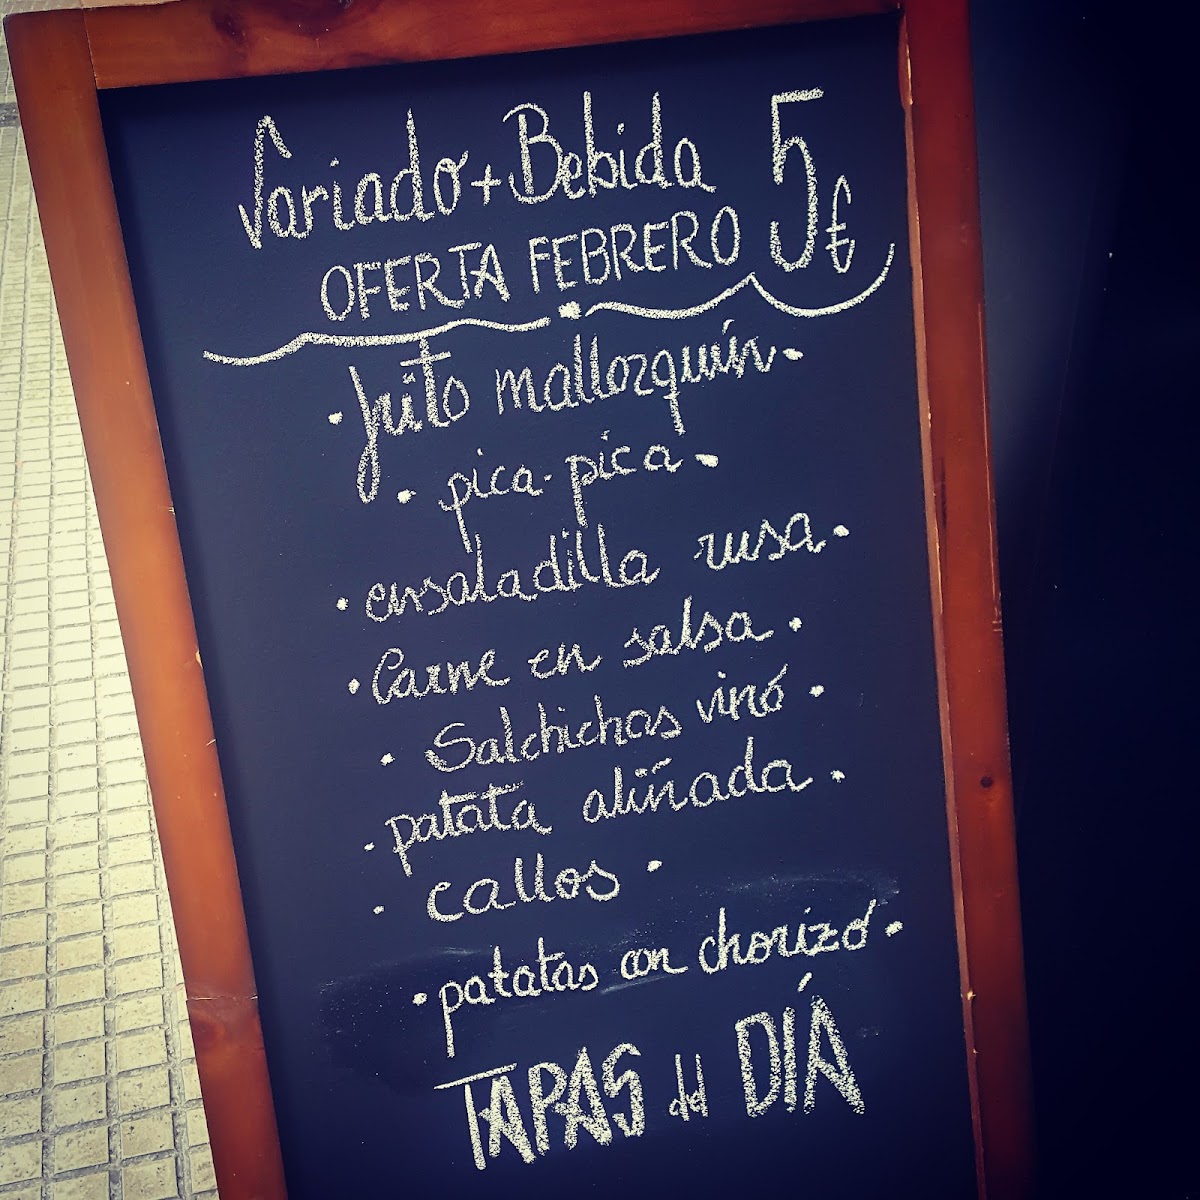 Variado + Bebida 5€
OFERTA FEBRERO
· frito mallorquín ·
· pica-pica ·
· ensaladilla rusa ·
· Carne en salsa ·
· Salchichas vino ·
· patata aliñada ·
· callos ·
· patatas con chorizo ·
TAPAS del DÍA